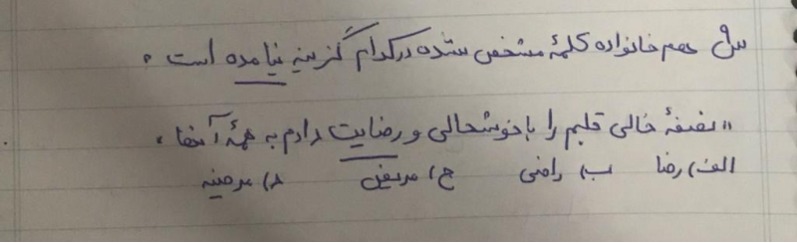 س۹ هم خانواده کلمهٔ مشخص شده در کدام گزینه نیامده است.
"نصفهٔ خالی قلبم را با خوشحالی و رضایت دادم به همهٔ آنها.
الف) رضا ب) راضی ج) مریض د) مرضیه